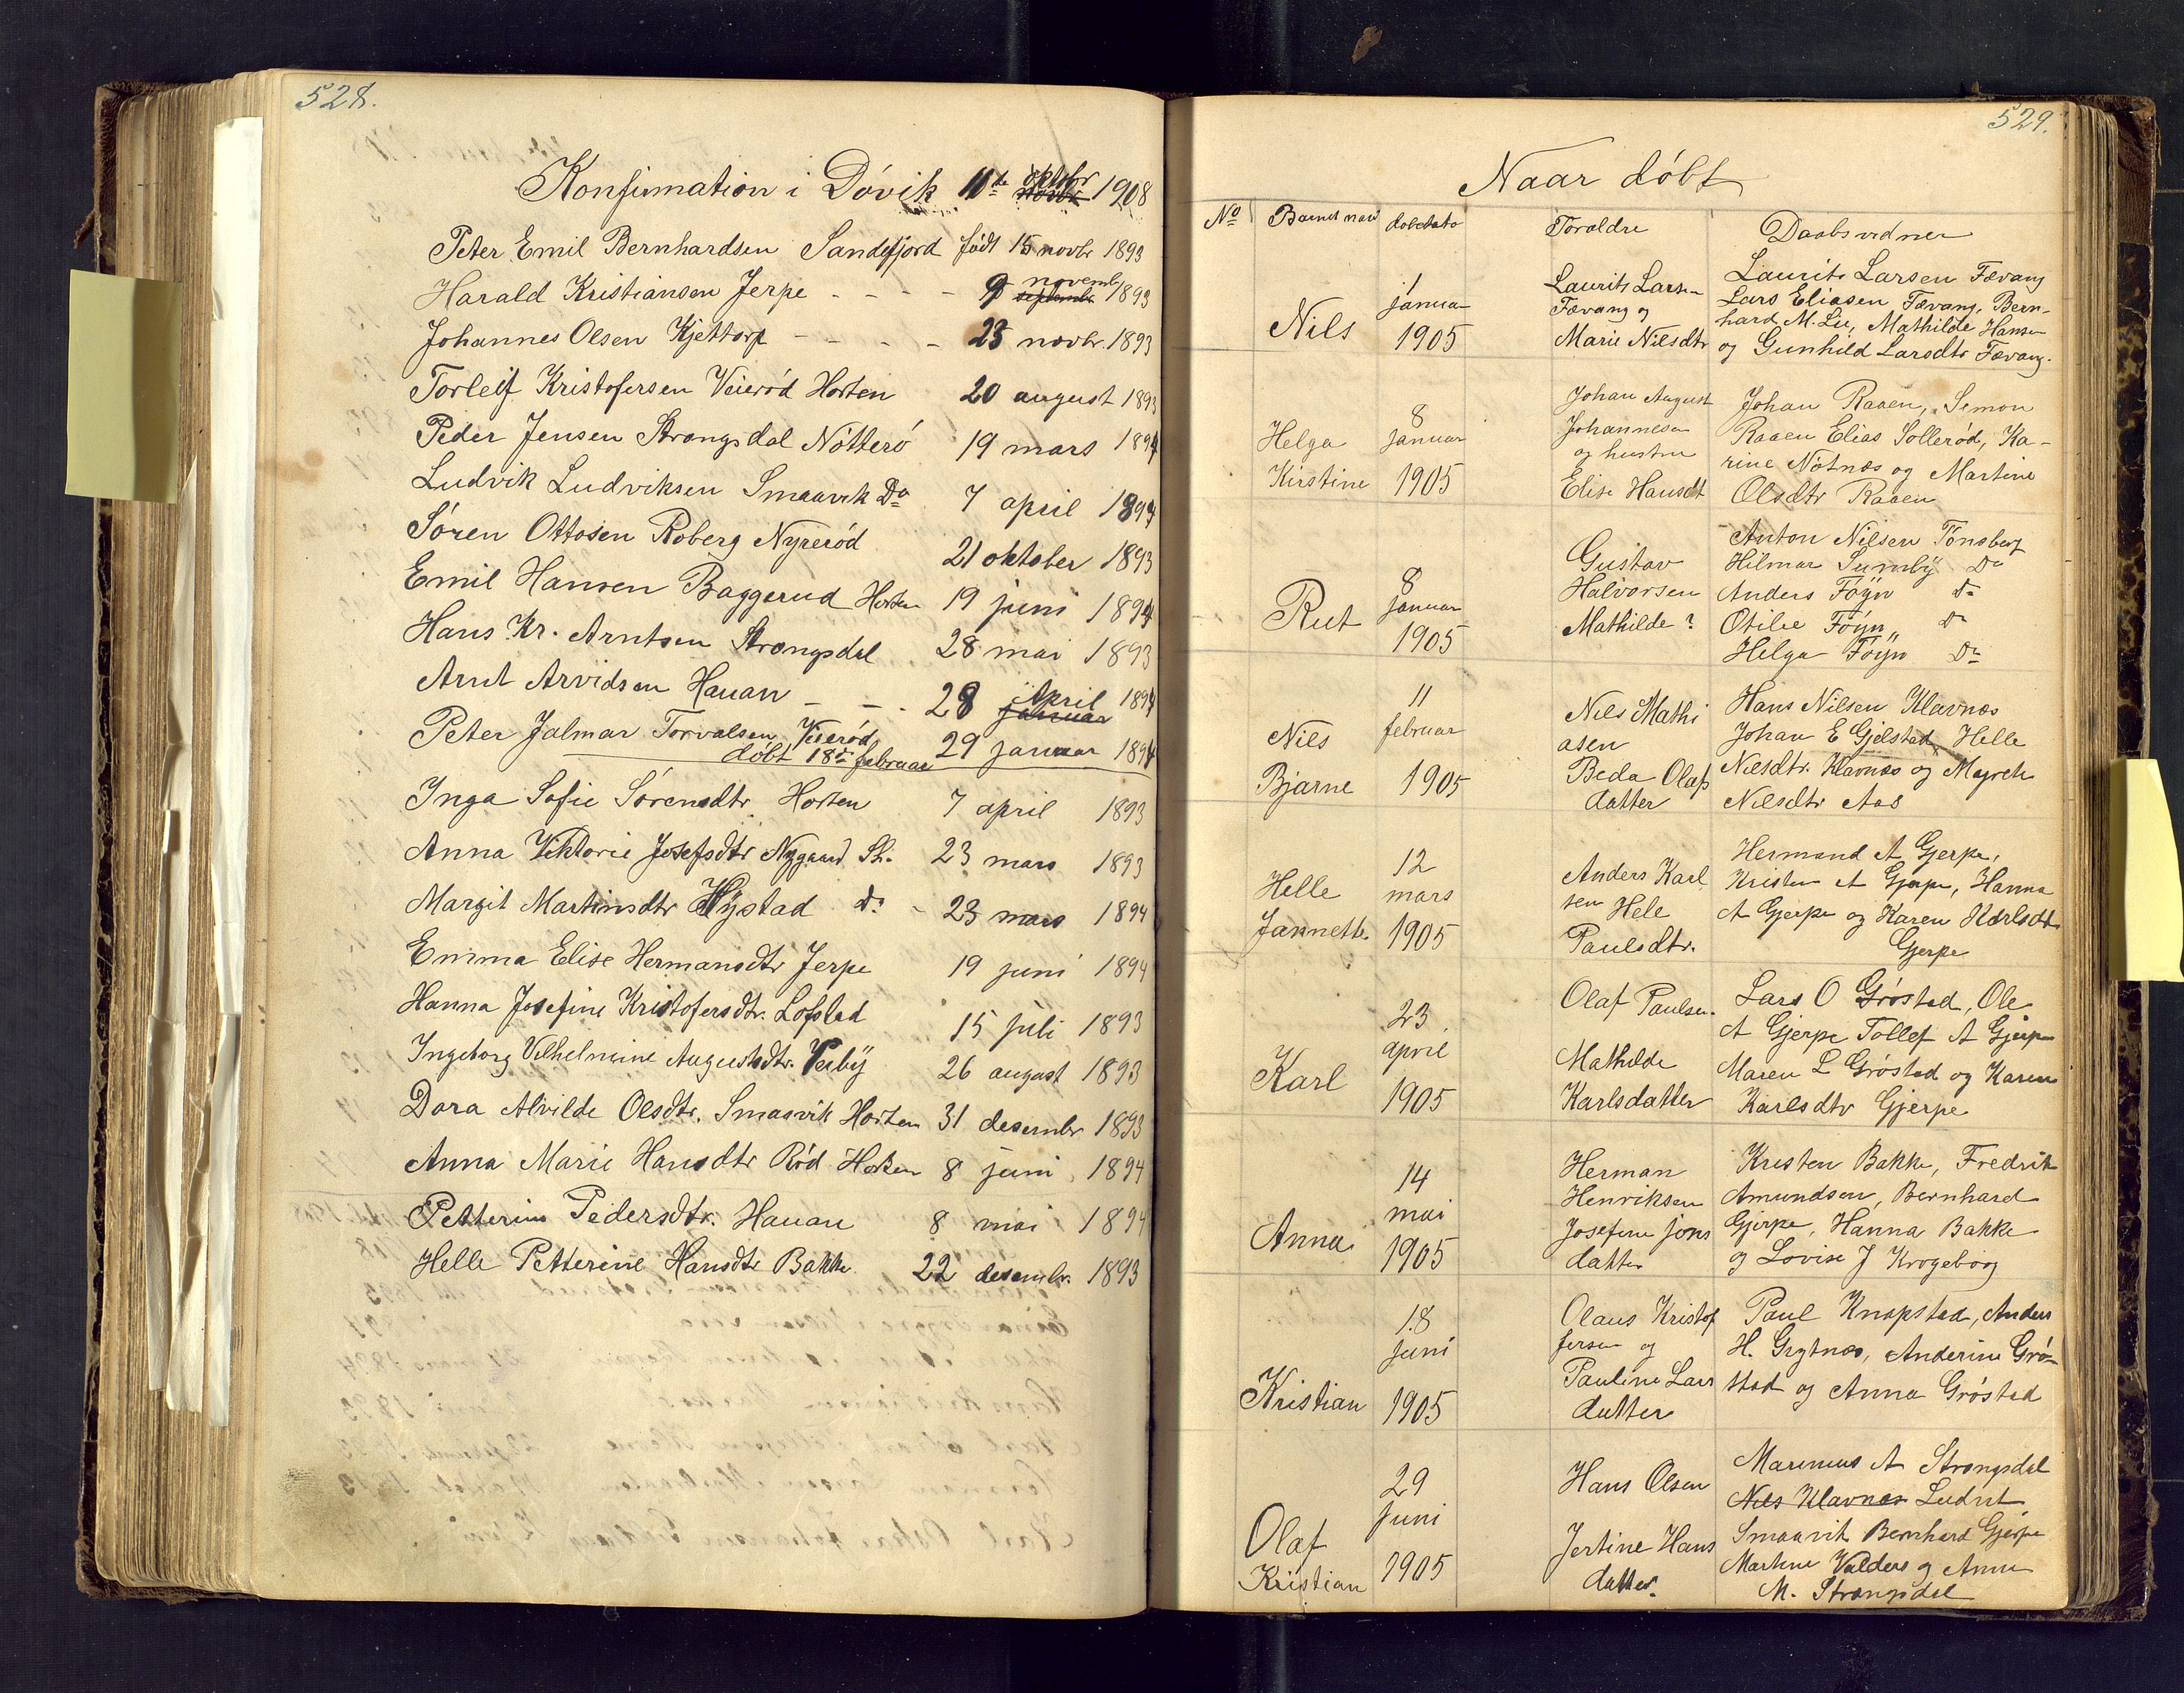 528.
Konfirmation i Dóvik 11te oktobr 1908
Peter Emil Bernhardsen Sandefjord født 15 novbr 1893
Harald Kristiansen Jerpe - - - - 9 novemb 1893
Johannes Olsen Kjettorp - - - - 23 novbr. 1893
Torleif Kristofersen Veieród Horten 20 august 1893
Peder Jensen Strangsdal Nótteró 19 mars 1894
Ludvik Ludviksen Smaavik Do 7 april 1894
Sóren Ottosen Roberg Nyreród 21 oktober 1893
Emil Hansen Baggerud Horten 19 juni 1894
Hans Kr. Arntsen Strangsdal 28 mai 1893
Arnt Arvidsen Hauan - - - 28 April januar 1894
Peter Jalmar Torvalsen Veieród 29 januar 1894
dóbt 18de februar
Inga Sofie Sórensdtr. Horten 7 april 1893
Anna Viktorie Josefsdtr Nygaard Sh. 23 mars 1893
Margit Martinsdtr Hÿstad do - 23 mars 1894
Emma Elise Hermansdtr Jerpe 19 juni 1894
Hanna Josefine Kristofersdtr. Lofstad 15 juli 1893
Ingeborg Vilhelmine Augustsdtr. Veibÿ 26 august 1893
Dora Alvilde Olsdtr. Smaavik Horten 31 desembr 1893
Anna Marie Hansdtr Ród Horten 8 juni 1894
Petterine Pedersdtr. Hauan 8 mai 1894
Helle Petterine Hansdtr Bakke 22 desembr. 1893
529.
Naar dóbt
No Barnets navn dobsdato Foraldre Daabsvidner
Nils
1 januar 1905
Laurits Larsen
Fævang og
Marie Nilsdtr
Laurits Larsen Fævang
Lars Eliasen Fævang, Bern-
hard M. Lie, Mathilde Hansen
og Gunhild Larsdtr Fævang.
Helga
Kirstine
8 januar 1905
Johan August
Johannesen
og hustru
Elise Hansdt
Johan Raaen, Simon
Raaen Elias Solleród, Ka-
rine Nótnæs og Martine
Olsdtr Raaen
Rut
8 januar 1905
Gustav
Halvorsen
Mathilde ?
Anton Nilsen Tónsberg
Hilmar Sumbÿ Do
Anders Fóÿn do
Otilie Fóyn do
Helga Fóÿn Do
Nils
Bjarne
11 februar 1905
Nils Mathi
asen
Beda Olafs
datter
Hans Nilsen Klavnæs
Johan E Gjelstad, Helle
Nilsdtr. Klavnæs og Magrete
Nilsdtr Aas
Helle
Jannette
12 mars 1905
Anders Karl
sen Hele
Paulsdtr.
Hermand A Gjerpe,
Kristen A Gjerpe, Hanna
A Gjerpe og Karen Karlsdtr
Gjerpe
Karl
23 april 1905
Olaf Paulsen
Mathilde
Karlsdatter
Lars O Gróstad, Ole
A Gjerpe Tollef A Gjerpe
Maren L Gróstad og Karen
Karlsdtr Gjerpe
Anna
14 mai 1905
Herman
Henriksen
Josefine Jons
datter
Kristen Bakke, Fredrik
Amundsen, Bernhard
Gjerpe, Hanna Bakke
og Lovise J Krogebog
Kristian
18 juni 1905
Olaus Kristof
fersen og
Pauline Lars
datter
Paul Knapstad, Anders
H. Grytnæs, Anderine Gró-
stad og Anna Gróstad
Olaf
Kristian
29 juni 1905
Hans Olsen
Jertine Hans
datter.
Marinius A Strangsdal
Nils Klavnæs Ludvik
Smaavik Bernhard Gjerpe
Martine Valders og Anne
M. Strangsdal